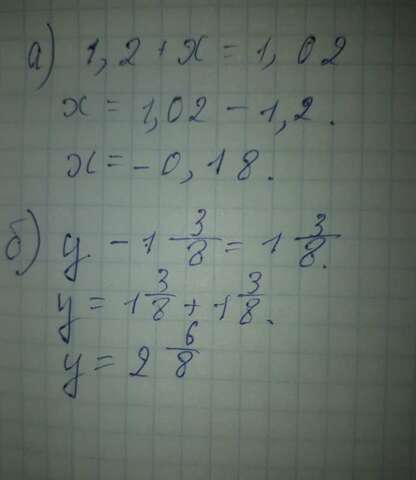 а) 1,2 + x = 1,02
x = 1,02 - 1,2.
x = -0,18.
б) y - 1 3/8 = 1 3/8.
y = 1 3/8 + 1 3/8.
y = 2 6/8